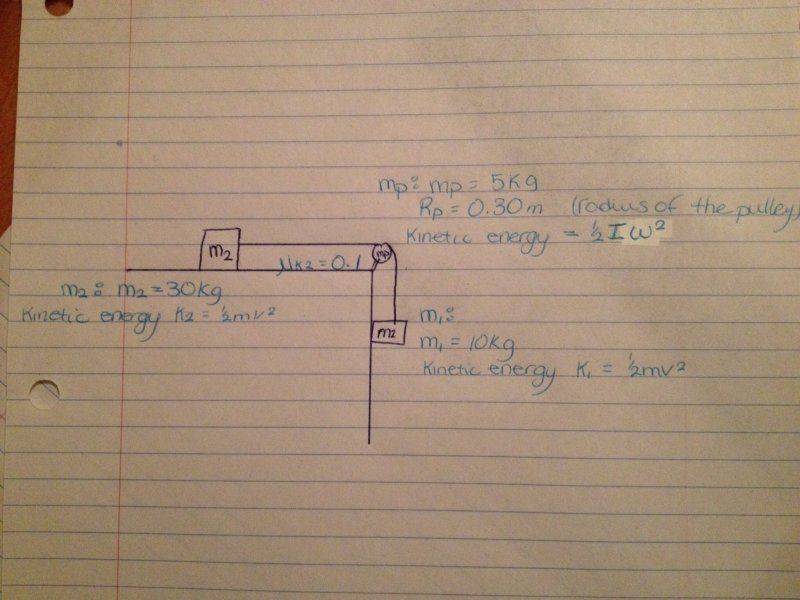 mp: mp = 5kg
Rp = 0.30m (radius of the pulley)
Kinetic energy = ½Iω²
m2
μk2 = 0.1
mp
m2: m2 = 30kg
Kinetic energy K2 = ½mv²
m2
m1:
m1 = 10kg
Kinetic energy K1 = ½mv²